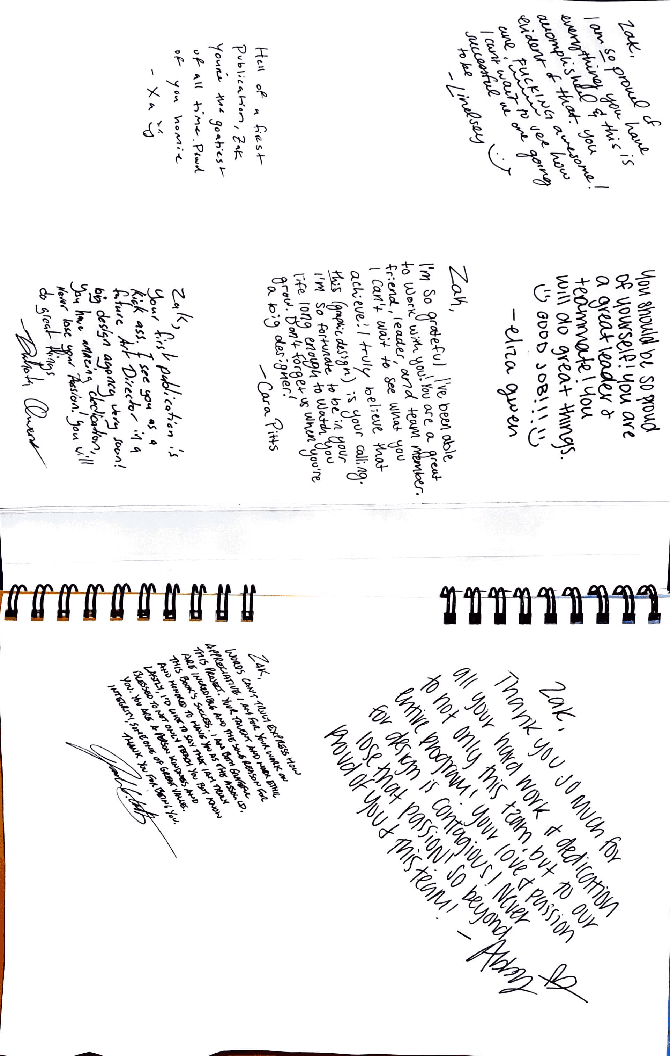 Zak,
I am so proud of
everything you have
accomplished & this is
evident of that. You
are FUCKING awesome!
I can't wait to see how
successful ur one going
to be
- Lindsey
Hell of a first
Publication, Zak
You're the goatiest
of all time. Proud
of you homie
- Xa
You should be so proud
of yourself! You are
a great leader &
teammate! You
will do great things.
GOOD JOB!!!
- eliza gwen
Zak,
I'm so grateful I've been able
to work with you! You are a great
friend, leader, and team member.
I can't wait to see what you
achieve! I truly believe that
this (graphic design) is your calling.
I'm so fortunate to be in your
life long enough to watch you
grow. Don't forget us when you're
a big designer!
- Cara Pitts
Zak,
Your first publication is
kick ass. I see you as a
future Art Director in a
big design agency very soon!
You have amazing dedication,
Never lose your passion, you will
do great things
Zak,
Thank you so much for
all your hard work & dedication
to not only this team, but to our
entire program! Your love & passion
for design is contagious! Never
lose that passion! So beyond
proud of you & this team!
- Abby
Zak,
WORDS CAN'T TRULY EXPRESS HOW
APPRECIATIVE I AM FOR YOUR WORK ON
THIS PROJECT. YOUR TALENT AND WORK ETHIC
ARE INCREDIBLE AND THE SOLE REASON FOR
THIS BOOK'S SUCCESS. I AM BOTH GRATEFUL
AND HONORED TO HAVE YOU AS THE ASSOC. CD.
LASTLY, I'D LOVE TO SAY THAT I AM TRULY
BLESSED TO NOT ONLY TEACH YOU BUT KNOW
YOU. YOU ARE A PERSON KINDNESS AND
INTEGRITY, SOMETHING OF GREAT VALUE.
THANK YOU FOR BEING YOU.